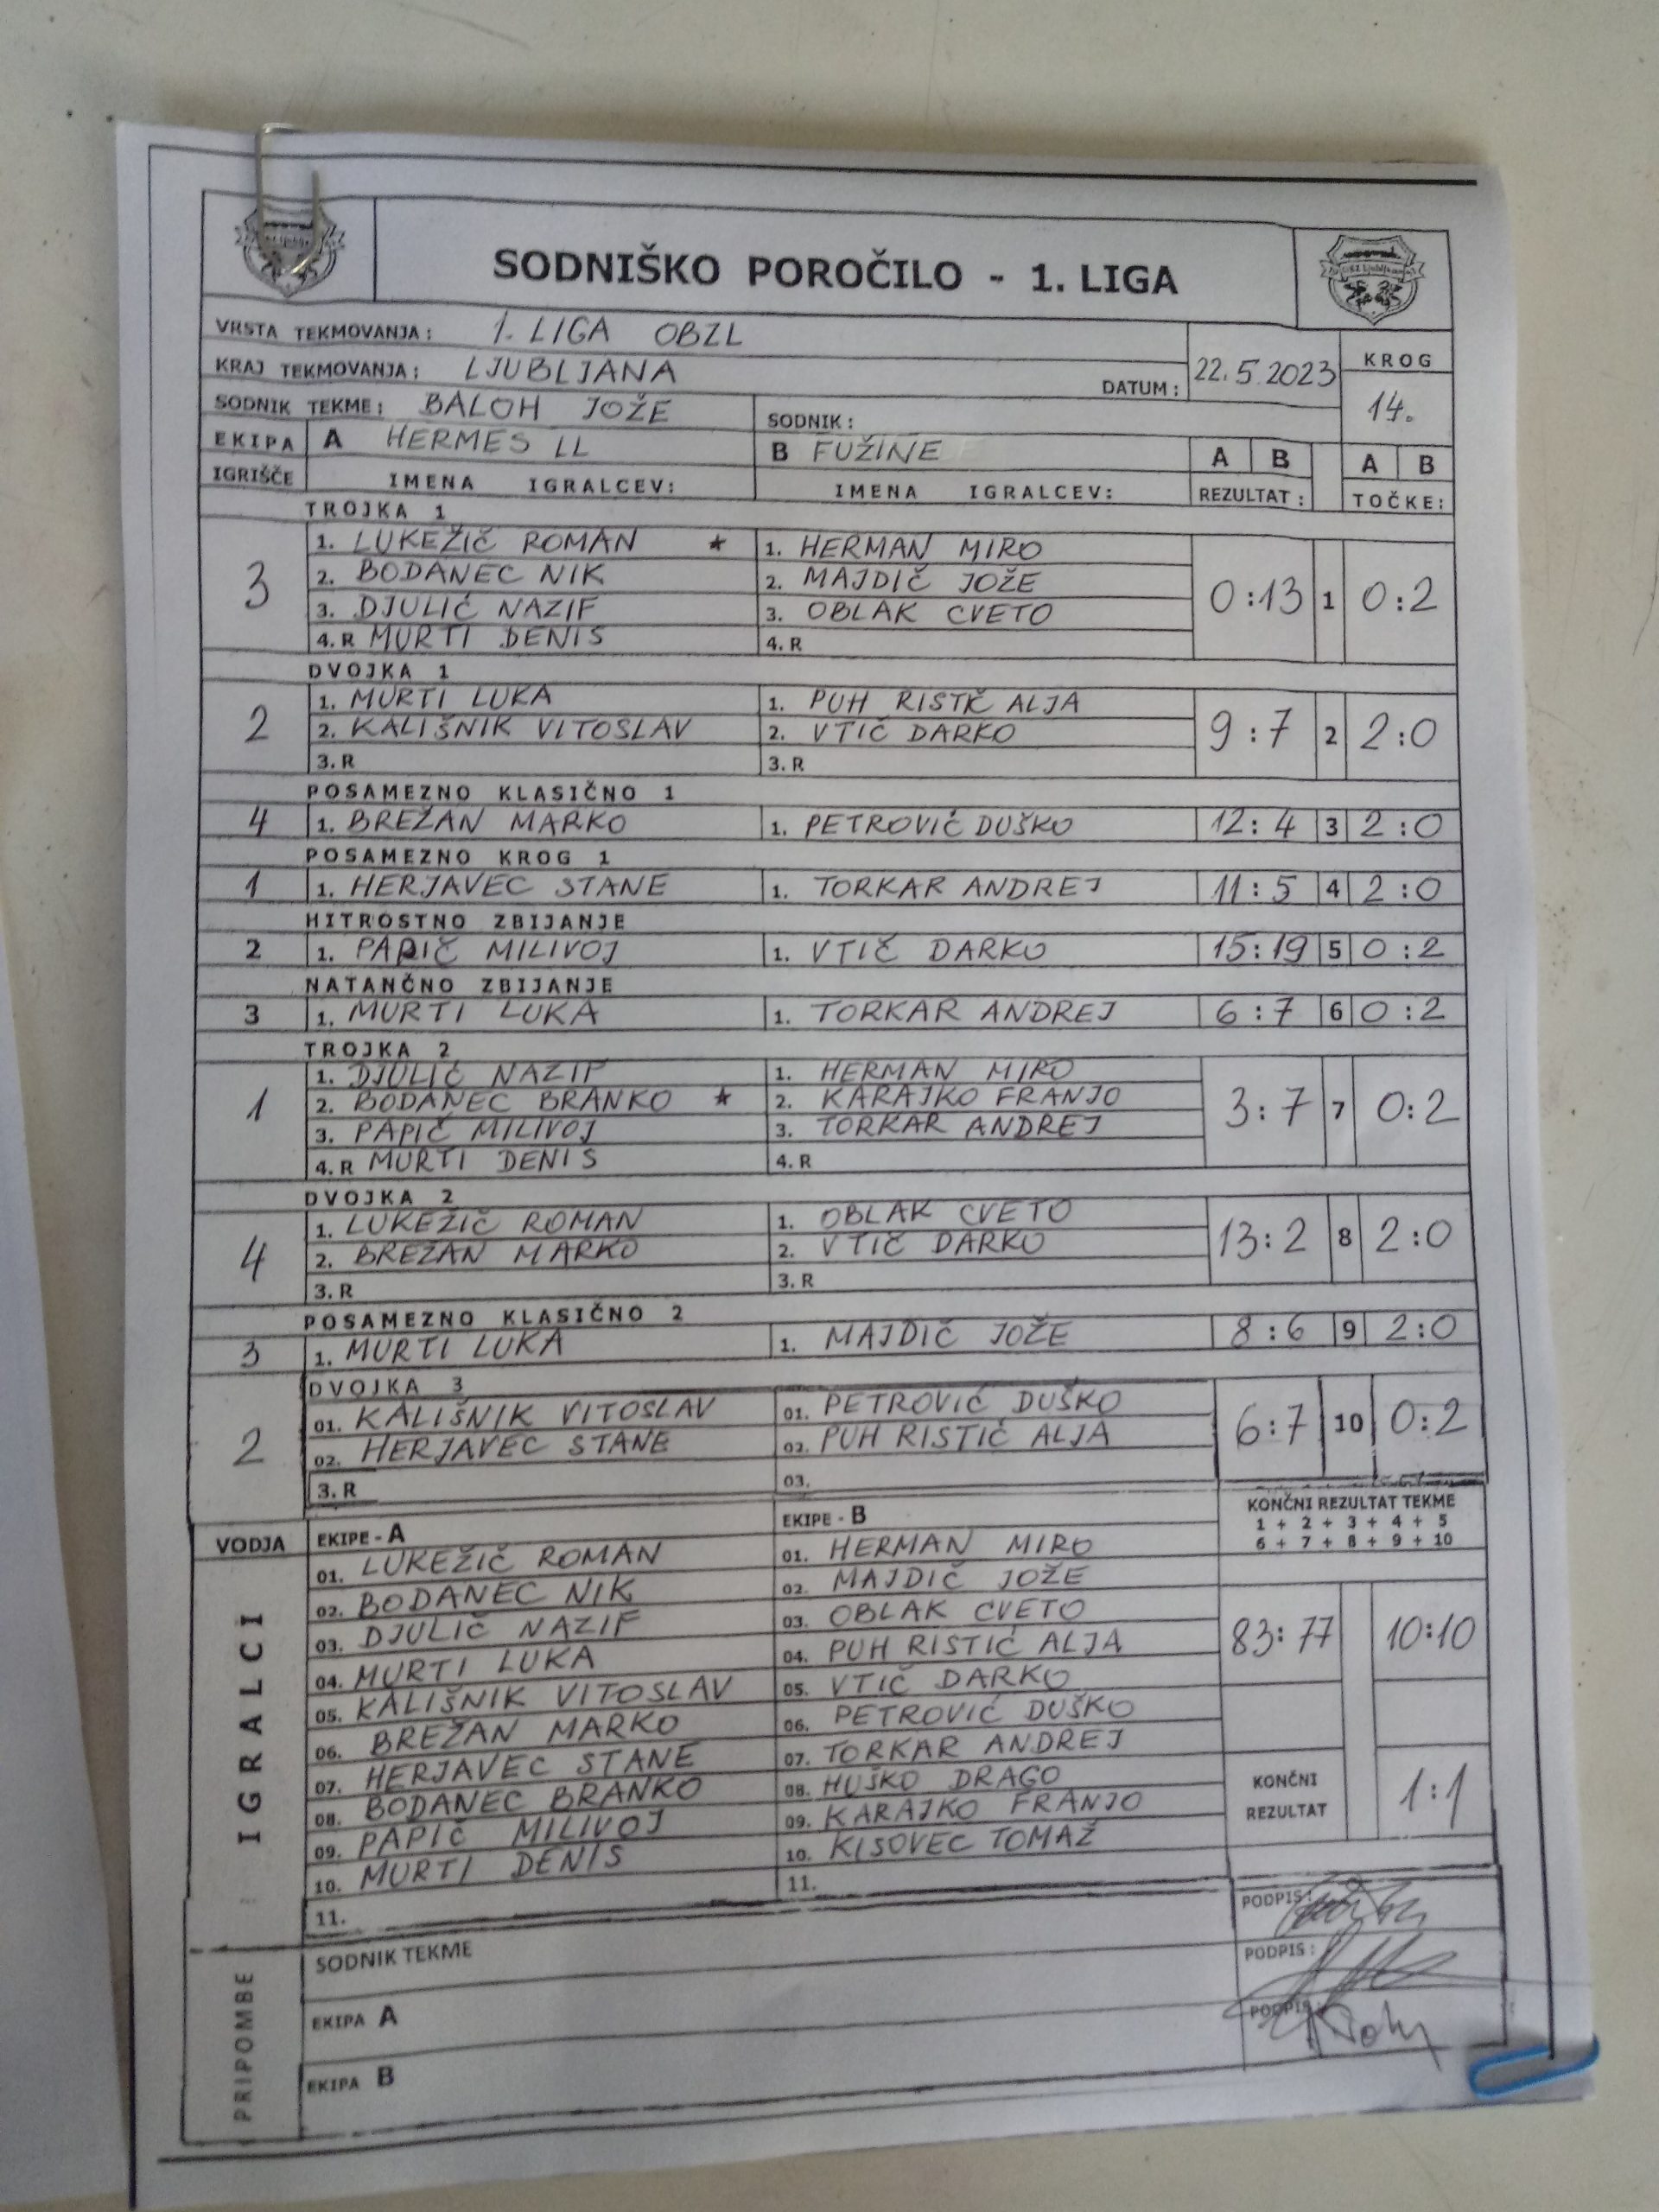 SODNIŠKO POROČILO - 1. LIGA
VRSTA TEKMOVANJA: 1. LIGA OBZL
KRAJ TEKMOVANJA: LJUBLJANA DATUM: 22.5.2023 KROG
SODNIK TEKME: BALOH JOŽE SODNIK: 14.
EKIPA A HERMES LL B FUŽINE A B A B
IGRIŠČE IMENA IGRALCEV: IMENA IGRALCEV: REZULTAT: TOČKE:
TROJKA 1
3 0:13 1 0:2
1. LUKEŽIČ ROMAN * 1. HERMAN MIRO
2. BODANEC NIK 2. MAJDIČ JOŽE
3. DJULIĆ NAZIF 3. OBLAK CVETO
4. R MURTI DENIS 4. R
DVOJKA 1
2 9:7 2 2:0
1. MURTI LUKA 1. PUH RISTIČ ALJA
2. KALIŠNIK VITOSLAV 2. VTIČ DARKO
3. R 3. R
POSAMEZNO KLASIČNO 1
4 1. BREŽAN MARKO 1. PETROVIĆ DUŠKO 12:4 3 2:0
POSAMEZNO KROG 1
1 1. HERJAVEC STANE 1. TORKAR ANDREJ 11:5 4 2:0
HITROSTNO ZBIJANJE
2 1. PAPIČ MILIVOJ 1. VTIČ DARKO 15:19 5 0:2
NATANČNO ZBIJANJE
3 1. MURTI LUKA 1. TORKAR ANDREJ 6:7 6 0:2
TROJKA 2
1 3:7 7 0:2
1. DJULIĆ NAZIF 1. HERMAN MIRO
2. BODANEC BRANKO * 2. KARAJKO FRANJO
3. PAPIČ MILIVOJ 3. TORKAR ANDREJ
4. R MURTI DENIS 4. R
DVOJKA 2
4 13:2 8 2:0
1. LUKEŽIČ ROMAN 1. OBLAK CVETO
2. BREŽAN MARKO 2. VTIČ DARKO
3. R 3. R
POSAMEZNO KLASIČNO 2
3 1. MURTI LUKA 1. MAJDIČ JOŽE 8:6 9 2:0
DVOJKA 3
2 6:7 10 0:2
01. KALIŠNIK VITOSLAV 01. PETROVIĆ DUŠKO
02. HERJAVEC STANE 02. PUH RISTIĆ ALJA
3. R 03.
VODJA EKIPE - A EKIPE - B KONČNI REZULTAT TEKME
1 + 2 + 3 + 4 + 5
6 + 7 + 8 + 9 + 10
IGRALCI
01. LUKEŽIČ ROMAN 01. HERMAN MIRO
02. BODANEC NIK 02. MAJDIČ JOŽE
03. DJULIČ NAZIF 03. OBLAK CVETO
83:77 10:10
04. MURTI LUKA 04. PUH RISTIĆ ALJA
05. KALIŠNIK VITOSLAV 05. VTIČ DARKO
06. BREŽAN MARKO 06. PETROVIĆ DUŠKO
07. HERJAVEC STANE 07. TORKAR ANDREJ
08. BODANEC BRANKO 08. HUŠKO DRAGO
KONČNI REZULTAT 1:1
09. PAPIČ MILIVOJ 09. KARAJKO FRANJO
10. MURTI DENIS 10. KISOVEC TOMAŽ
11. 11.
PRIPOMBE
SODNIK TEKME PODPIS:
EKIPA A PODPIS:
EKIPA B PODPIS: